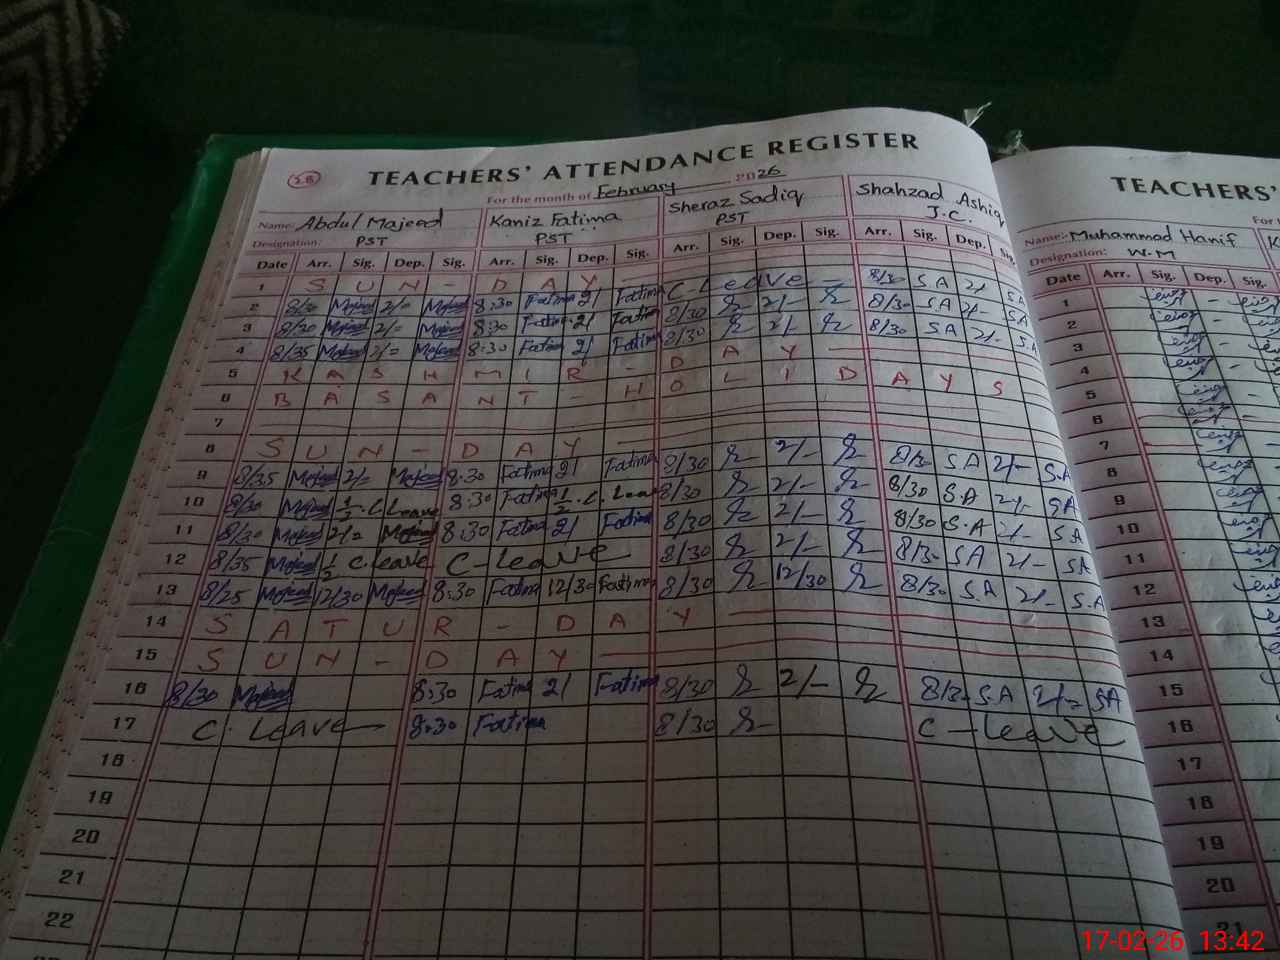 TEACHERS' ATTENDANCE REGISTER
For the month of February 2026
Name: Abdul Majeed Kaniz Fatima Sheraz Sadiq Shahzad Ashiq
Designation: PST PST PST J.C.
Date Arr. Sig. Dep. Sig. Arr. Sig. Dep. Sig. Arr. Sig. Dep. Sig. Arr. Sig. Dep. Sig.
1 S U N - D A Y
2 8/30 Majeed 2/= Majeed 8:30 Fatima 2/ Fatima C-Leave - 8/30 SA 2/- SA
3 8/30 Majeed 2/= Majeed 8:30 Fatima 2/ Fatima 8/30 2/- 8/30 SA 2/- SA
4 8/35 Majeed 2/= Majeed 8:30 Fatima 2/ Fatima 8/30 2/- 8/30 SA 2/- SA
5 K A S H M I R - D A Y
6 B A S A N T - H O L I D A Y S
7
8 S U N - D A Y
9 8/35 Majeed 2/= Majeed 8:30 Fatima 2/ Fatima 8/30 2/- 8/30 SA 2/- S.A
10 8/30 Majeed 1/2 - C Leave 8:30 Fatima 1/2 - C. Leave 8/30 2/- 8/30 S.A 2/- SA
11 8/30 Majeed 2/= Majeed 8:30 Fatima 2/ Fatima 8/30 2/- 8/30 S.A 2/- SA
12 8/35 Majeed 1/2 C.leave C-Leave 8/30 2/- 8/30 SA 2/- SA
13 8/25 Majeed 12/30 Majeed 8:30 Fatima 12/30 Fatima 8/30 12/30 8/30 SA 2/- S.A
14 S A T U R - D A Y
15 S U N - D A Y
16 8/30 Majeed 8:30 Fatima 2/ Fatima 8/30 2/- 8/30 SA 2/= SA
17 C. Leave 8:30 Fatima 8/30 C-Leave
18
19
20
21
22
TEACHERS'
Name:- Muhammad Hanif
Designation: W.M
Date Arr. Sig. Dep. Sig.
1
2
3
4
5
6
7
8
9
10
11
12
13
14
15
16
17
18
19
20
21
17-02-26 13:42